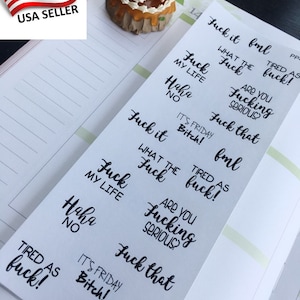 USA SELLER
Fuck it
fml
PP
WHAT THE
Fuck
TIRED AS
fuck!
Fuck
MY LIFE
ARE YOU
Fucking
SERIOUS?
Haha
NO
IT'S FRIDAY
Bitch!
Fuck that
Fuck it
fml
WHAT THE
Fuck
TIRED AS
fuck!
Fuck
MY LIFE
ARE YOU
Fucking
SERIOUS?
Haha
NO
IT'S FRIDAY
Bitch!
Fuck that
TIRED AS
fuck!